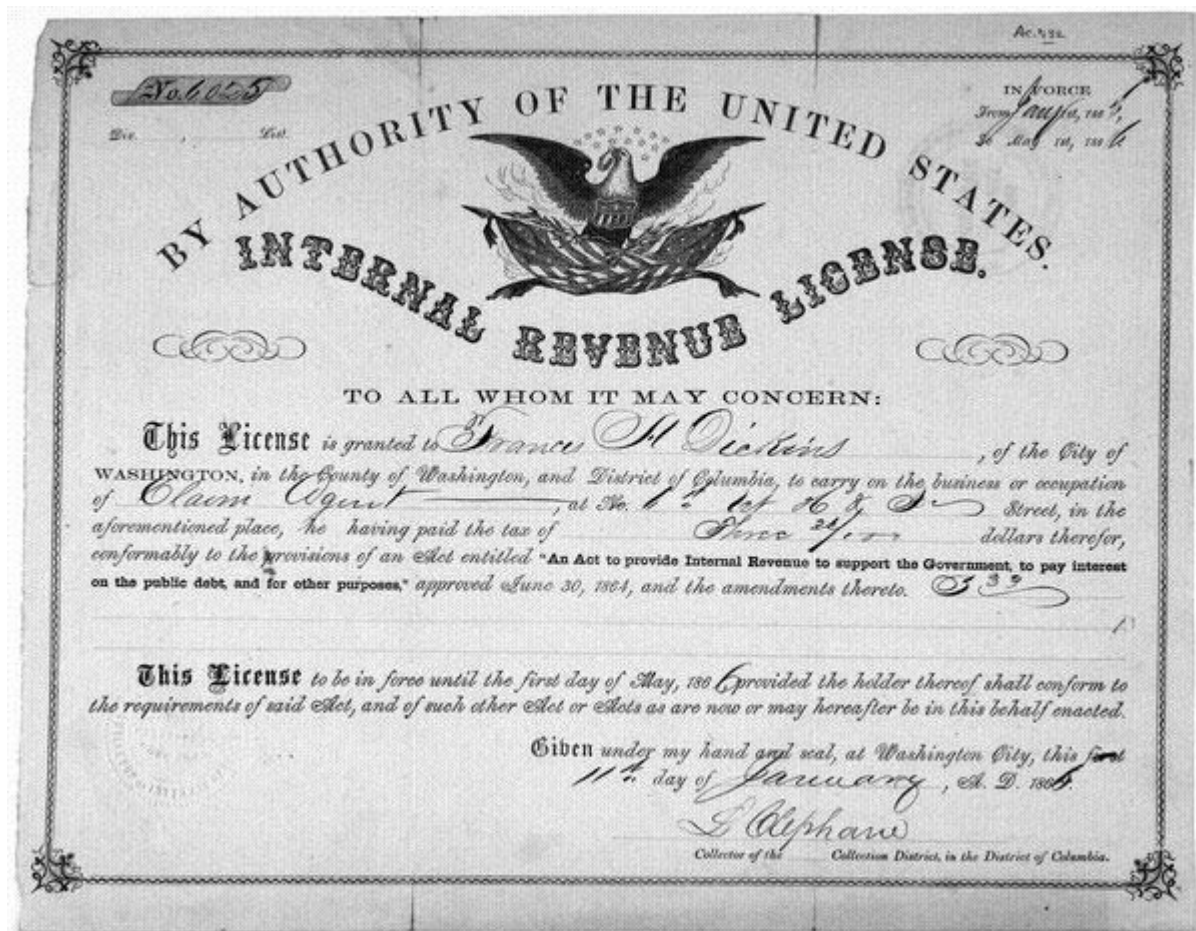 No. 6025
Div. , Dist.
IN FORCE
From Jany 1st, 186
To May 1st, 1866
BY AUTHORITY OF THE UNITED STATES.
INTERNAL REVENUE LICENSE.
TO ALL WHOM IT MAY CONCERN:
This License is granted to Francis H Dickins , of the City of
WASHINGTON, in the County of Washington, and District of Columbia, to carry on the business or occupation
of Claim Agent , at No. Street, in the
aforementioned place, he having paid the tax of Three dollars therefor,
conformably to the provisions of an Act entitled "An Act to provide Internal Revenue to support the Government, to pay interest
on the public debt, and for other purposes," approved June 30, 1864, and the amendments thereto.
This License to be in force until the first day of May, 1866 provided the holder thereof shall conform to
the requirements of said Act, and of such other Act or Acts as are now or may hereafter be in this behalf enacted.
Given under my hand and seal, at Washington City, this first
11th day of January , A. D. 186
L Clephane
Collector of the Collection District, in the District of Columbia.